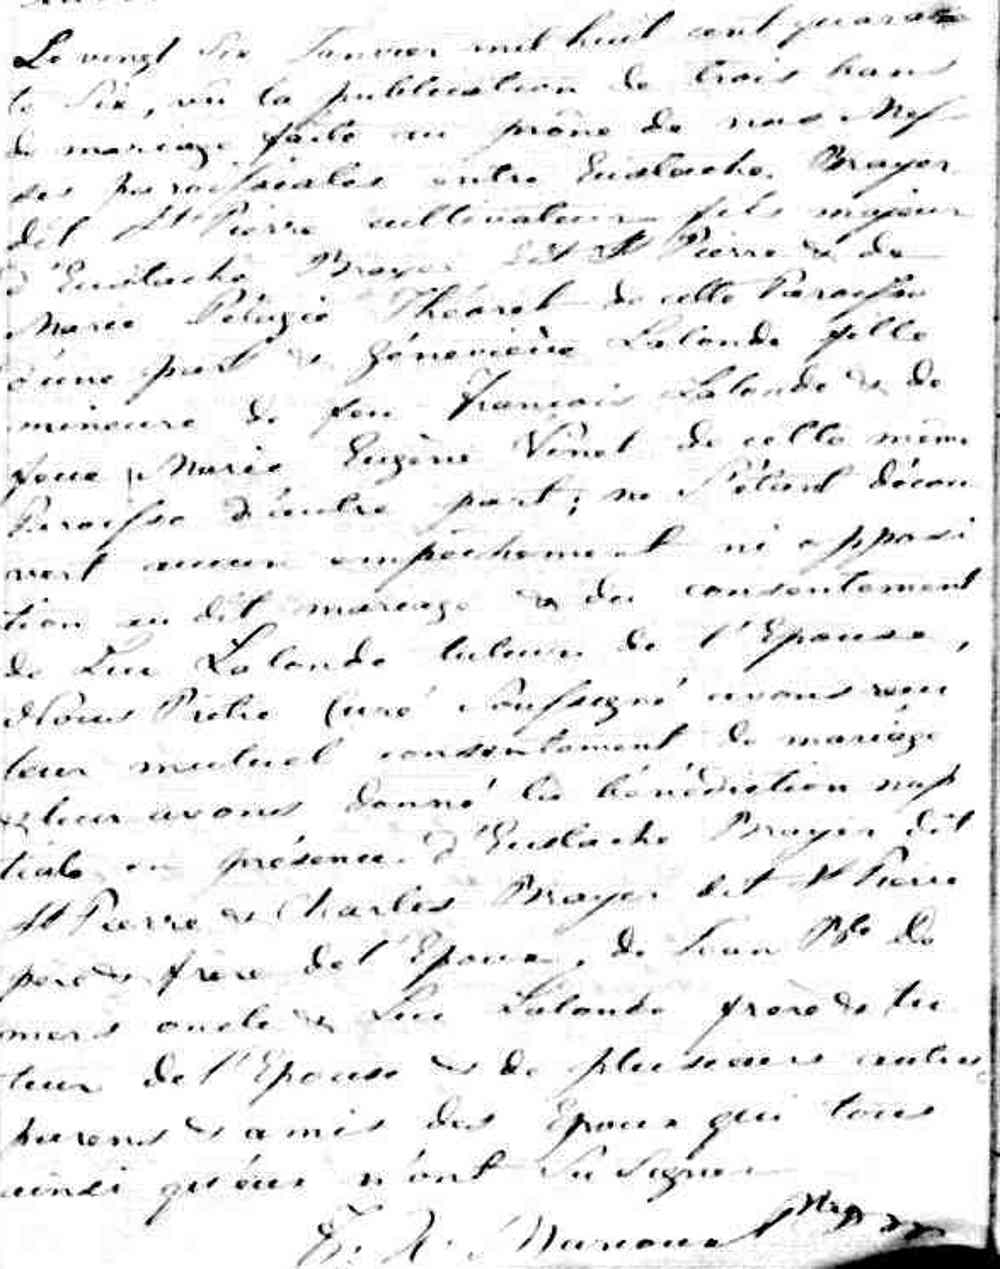 Le vingt Six Janvier mil huit cent quaran
te Six, vû la publication de trois bans
de mariage faite au prône de nos Mes
ses paroissiales entre Eustache Brayer
dit St Pierre cultivateur fils majeur
d'Eustache Brayer dit St Pierre & de
Marie Pélagie Théoret de cette Paroisse
d'une part & Géneviève Lalonde fille
mineure de feu François Lalonde & de
feue Marie Eugène Vinet de cette même
Paroisse d'autre part; ne S'étant découv
vert aucun empêchement ni opposi
tion au dit mariage & du consentement
de Luc Lalonde tuteur de l'Epouse,
Nous Prêtre Curé Soussigné avons reçu
leur mutuel consentement de mariage
& leur avons donné la bénédiction nup
tiale en présence d'Eustache Brayer dit
St Pierre & Charles Brayer dit St Pierre
père & frère de l'Epoux, de Jean Bte De
mers oncle & Luc Lalonde frère & tu
teur de l'Epouse & de plusieurs autres
parens & amis des Epoux qui tous
ainsi qu'eux n'ont Su Signer